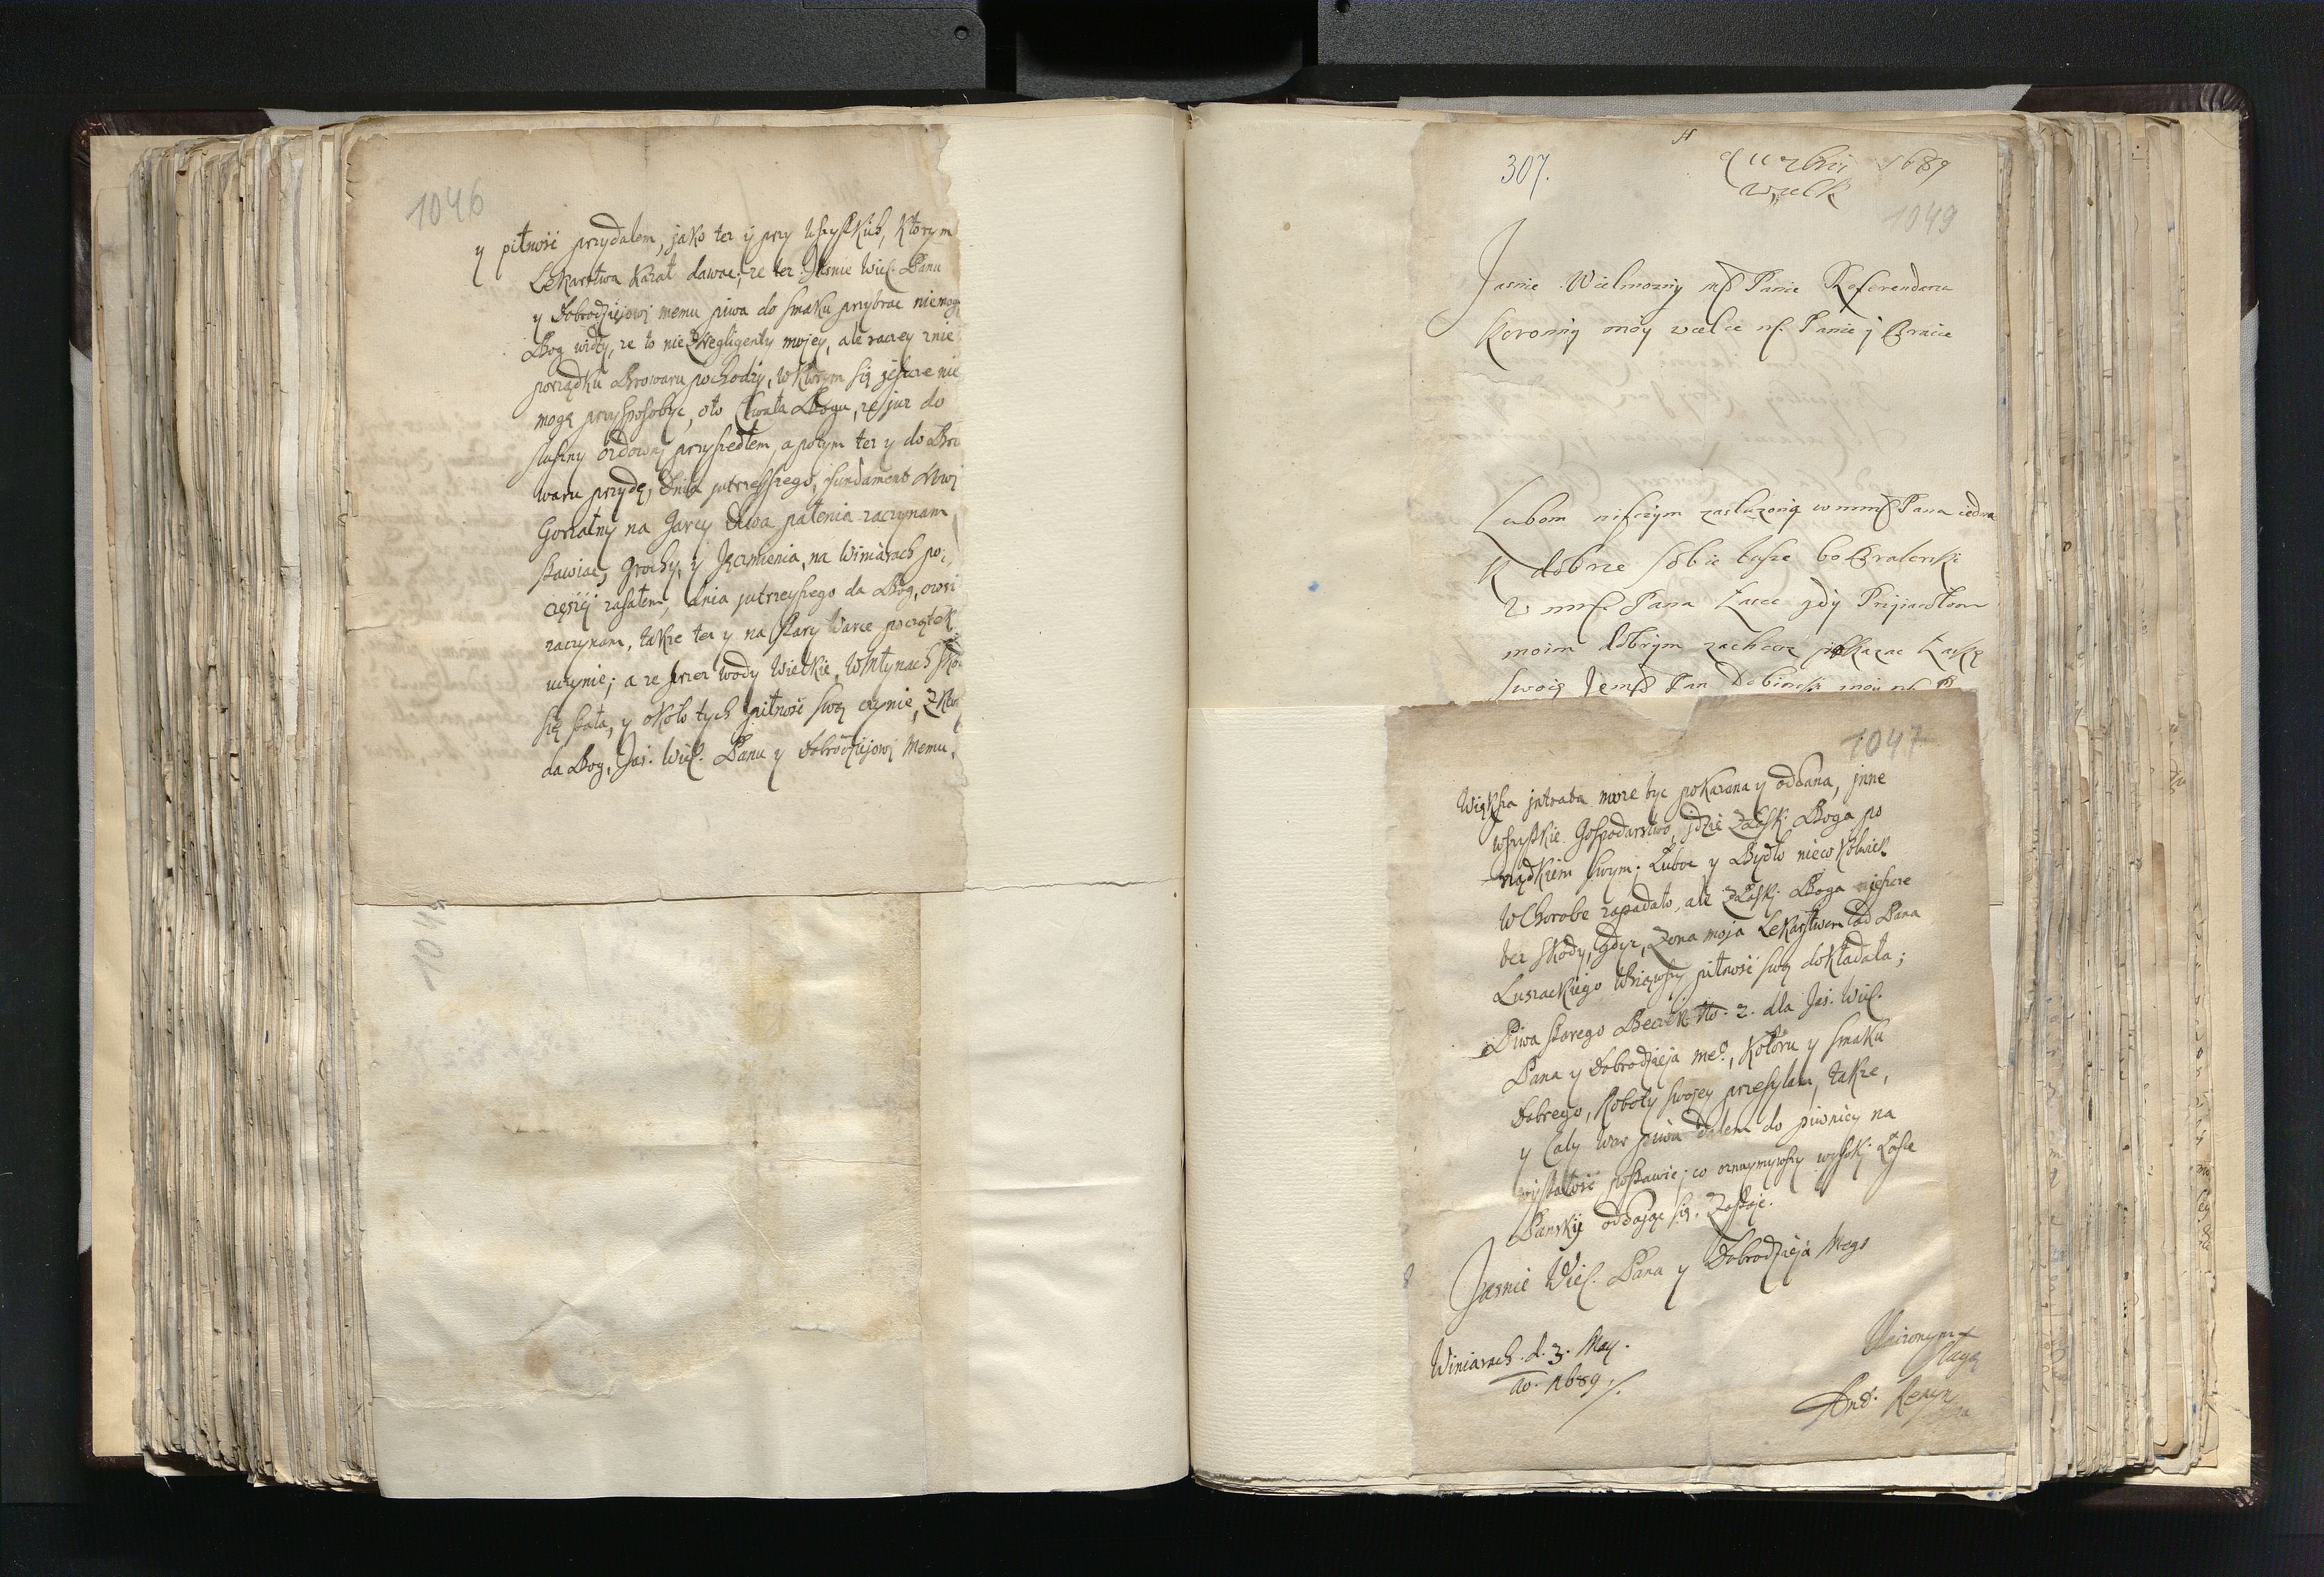 1046
y pilność przydałem, jako tez y przy wszystkich, ktorym
Lekarstwa kazał dawac; ze tez Jasnie Wiel. Panu
y Dobrodziejowi memu piwa do smaku przybrac niemogę
Bog widzy, ze to nie z negligenty mojey, ale raczey z nie
porządku Browaru pochodzy, w ktorym się jeszcze nie
mogę przysposobyc, oto Chwała Bogu, ze juz do
słuszny przyszedłem, a potym tez y do Bro
waru przydę, Dnia jutrzeyszego, fundament Nowy
Gorzalny na Garcy Dwa palenia zaczynam
stawiac, Grochy, y Jęczmienia, na Winiarach po
częsći zasałem, dnia jutrzeyszego da Bog, owsi
zaczynam, takze tez y na stary Warce początek
uczynie; a ze przez wody Wielkie, w Młynach szko
się stała, y około tych pilność swą czynie, z ktor
da Bog, Jas: Wiel. Panu y Dobrodziejowi Memu,
1045
307.
1689
1049
Jasnie Wielmozny Panie Referendarzu
Koronny moy wielce Panie y Bracie
Lubom niczym zasluzoną w Pana
dobrze sobie tusze bo Braterski
Pana Łasce gdy Przyiacielom
moim dobrym zachcesz pokazac Łaskę
swoią Pan
1047
Większa jntrata moze byc pokazana y oddana, jnne
wszystkie Gospodarstwo, jdzie z Łaski Boga po
rządkiem swym. Luboc y Bydło
w Chorobe zapadało, ale z Łaski Boga jeszcze
bez szkody, gdyz Zona moja Lekarstwem od Pana
Luszackiego wziąwszy pilność swą dokładała;
Piwa starego Beczek No. 2. dla Jas: Wiel.
Pana y Dobrodzieja meo, koloru y smaku
Dobrego, Roboty swojey przesyłam, takze,
y Cały War piwa dałem do piwnicy na
wystałość postawic; co oznaymywszy wysoki Łasce
Panskiy oddając się, Zostaje.
Jasnie Wiel. Pana y Dobrodzieja Mego
Winiarach. d. 3. May.
Ao. 1689
Uniżonym
Sługą
And: